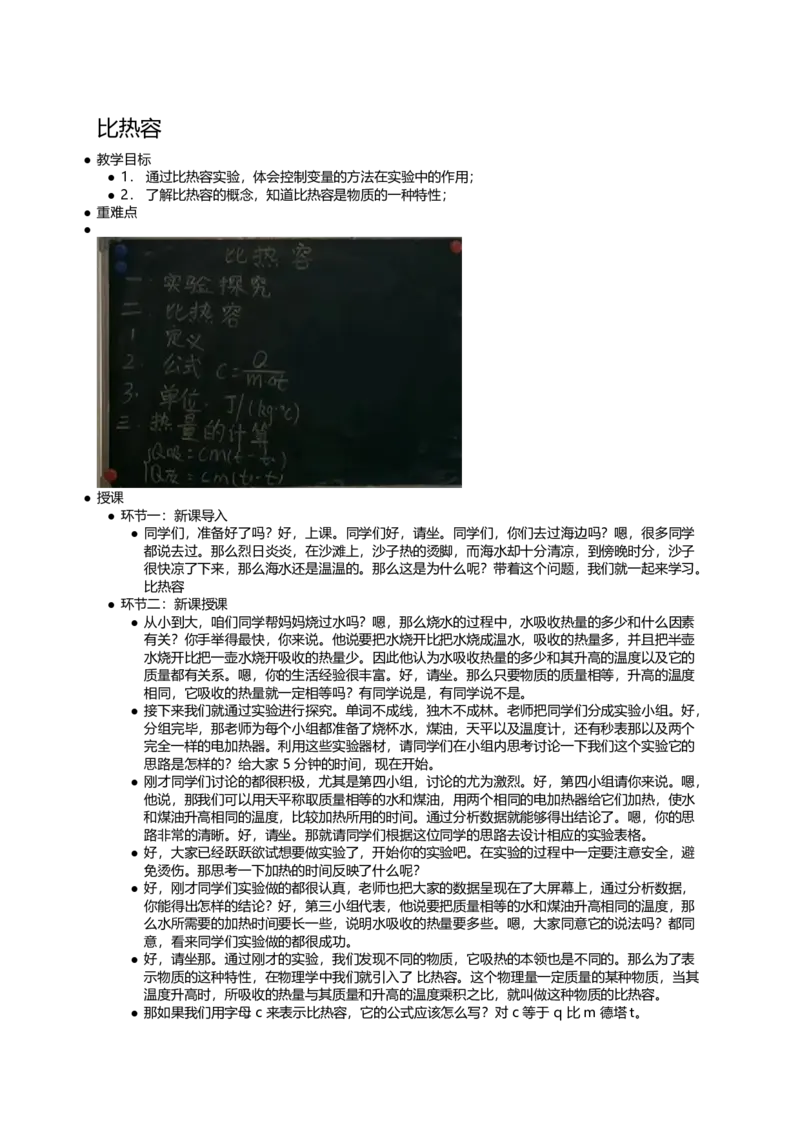 比热容
● 教学目标
● 1． 通过比热容实验，体会控制变量的方法在实验中的作用；
● 2． 了解比热容的概念，知道比热容是物质的一种特性；
● 重难点
●
比热容
一．实验探究
二．比热容
1 定义
2. 公式 C=Q/m·Δt
3. 单位. J/(kg·℃)
三．热量的计算
Q吸=cm(t-t₀)
Q放=cm(t₀-t)
● 授课
● 环节一：新课导入
● 同学们，准备好了吗？好，上课。同学们好，请坐。同学们，你们去过海边吗？嗯，很多同学
都说去过。那么烈日炎炎，在沙滩上，沙子热的烫脚，而海水却十分清凉，到傍晚时分，沙子
很快凉了下来，那么海水还是温温的。那么这是为什么呢？带着这个问题，我们就一起来学习。
比热容
● 环节二：新课授课
● 从小到大，咱们同学帮妈妈烧过水吗？嗯，那么烧水的过程中，水吸收热量的多少和什么因素
有关？你手举得最快，你来说。他说要把水烧开比把水烧成温水，吸收的热量多，并且把半壶
水烧开比把一壶水烧开吸收的热量少。因此他认为水吸收热量的多少和其升高的温度以及它的
质量都有关系。嗯，你的生活经验很丰富。好，请坐。那么只要物质的质量相等，升高的温度
相同，它吸收的热量就一定相等吗？有同学说是，有同学说不是。
● 接下来我们就通过实验进行探究。单词不成线，独木不成林。老师把同学们分成实验小组。好，
分组完毕，那老师为每个小组都准备了烧杯水，煤油，天平以及温度计，还有秒表那以及两个
完全一样的电加热器。利用这些实验器材，请同学们在小组内思考讨论一下我们这个实验它的
思路是怎样的？给大家 5 分钟的时间，现在开始。
● 刚才同学们讨论的都很积极，尤其是第四小组，讨论的尤为激烈。好，第四小组请你来说。嗯，
他说，那我们可以用天平称取质量相等的水和煤油，用两个相同的电加热器给它们加热，使水
和煤油升高相同的温度，比较加热所用的时间。通过分析数据就能够得出结论了。嗯，你的思
路非常的清晰。好，请坐。那就请同学们根据这位同学的思路去设计相应的实验表格。
● 好，大家已经跃跃欲试想要做实验了，开始你的实验吧。在实验的过程中一定要注意安全，避
免烫伤。那思考一下加热的时间反映了什么呢？
● 好，刚才同学们实验做的都很认真，老师也把大家的数据呈现在了大屏幕上，通过分析数据，
你能得出怎样的结论？好，第三小组代表，他说要把质量相等的水和煤油升高相同的温度，那
么水所需要的加热时间要长一些，说明水吸收的热量要多些。嗯，大家同意它的说法吗？都同
意，看来同学们实验做的都很成功。
● 好，请坐那。通过刚才的实验，我们发现不同的物质，它吸热的本领也是不同的。那么为了表
示物质的这种特性，在物理学中我们就引入了 比热容。这个物理量一定质量的某种物质，当其
温度升高时，所吸收的热量与其质量和升高的温度乘积之比，就叫做这种物质的比热容。
● 那如果我们用字母 c 来表示比热容，它的公式应该怎么写？对 c 等于 q 比 m 德塔 t。